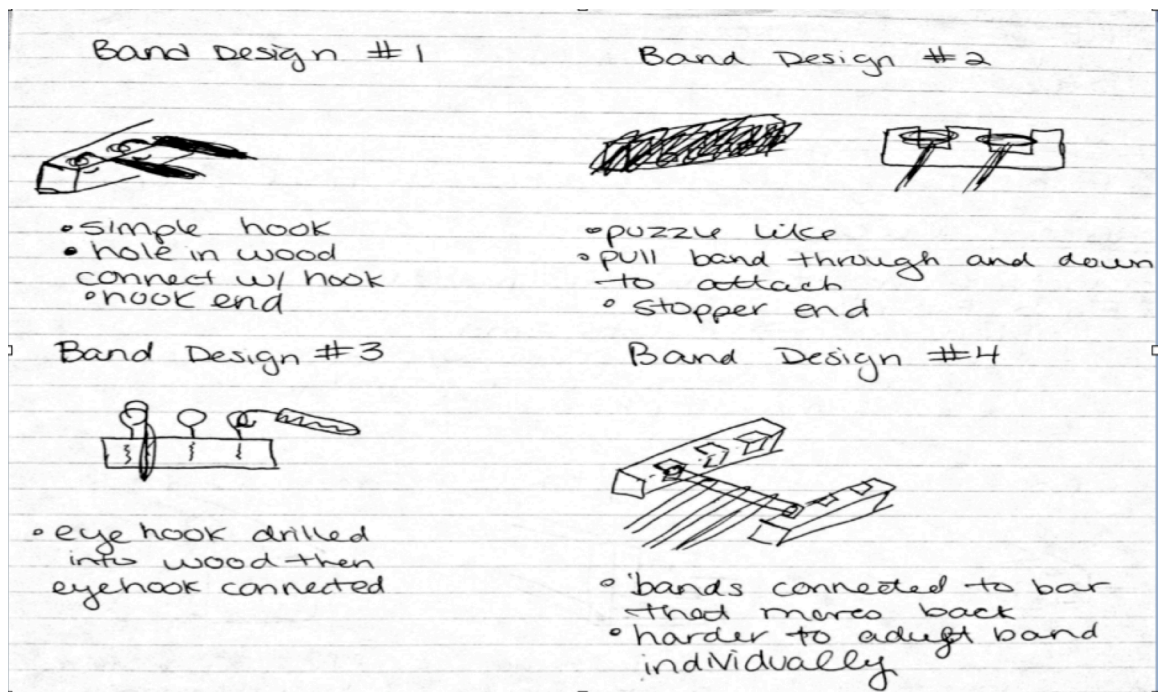 Band Design #1
• simple hook
• hole in wood
connect w/ hook
• hook end
Band Design #2
• puzzle like
• pull band through and down
to attach
• stopper end
Band Design #3
• eye hook drilled
into wood then
eyehook connected
Band Design #4
• bands connected to bar
back
• harder to band
individually